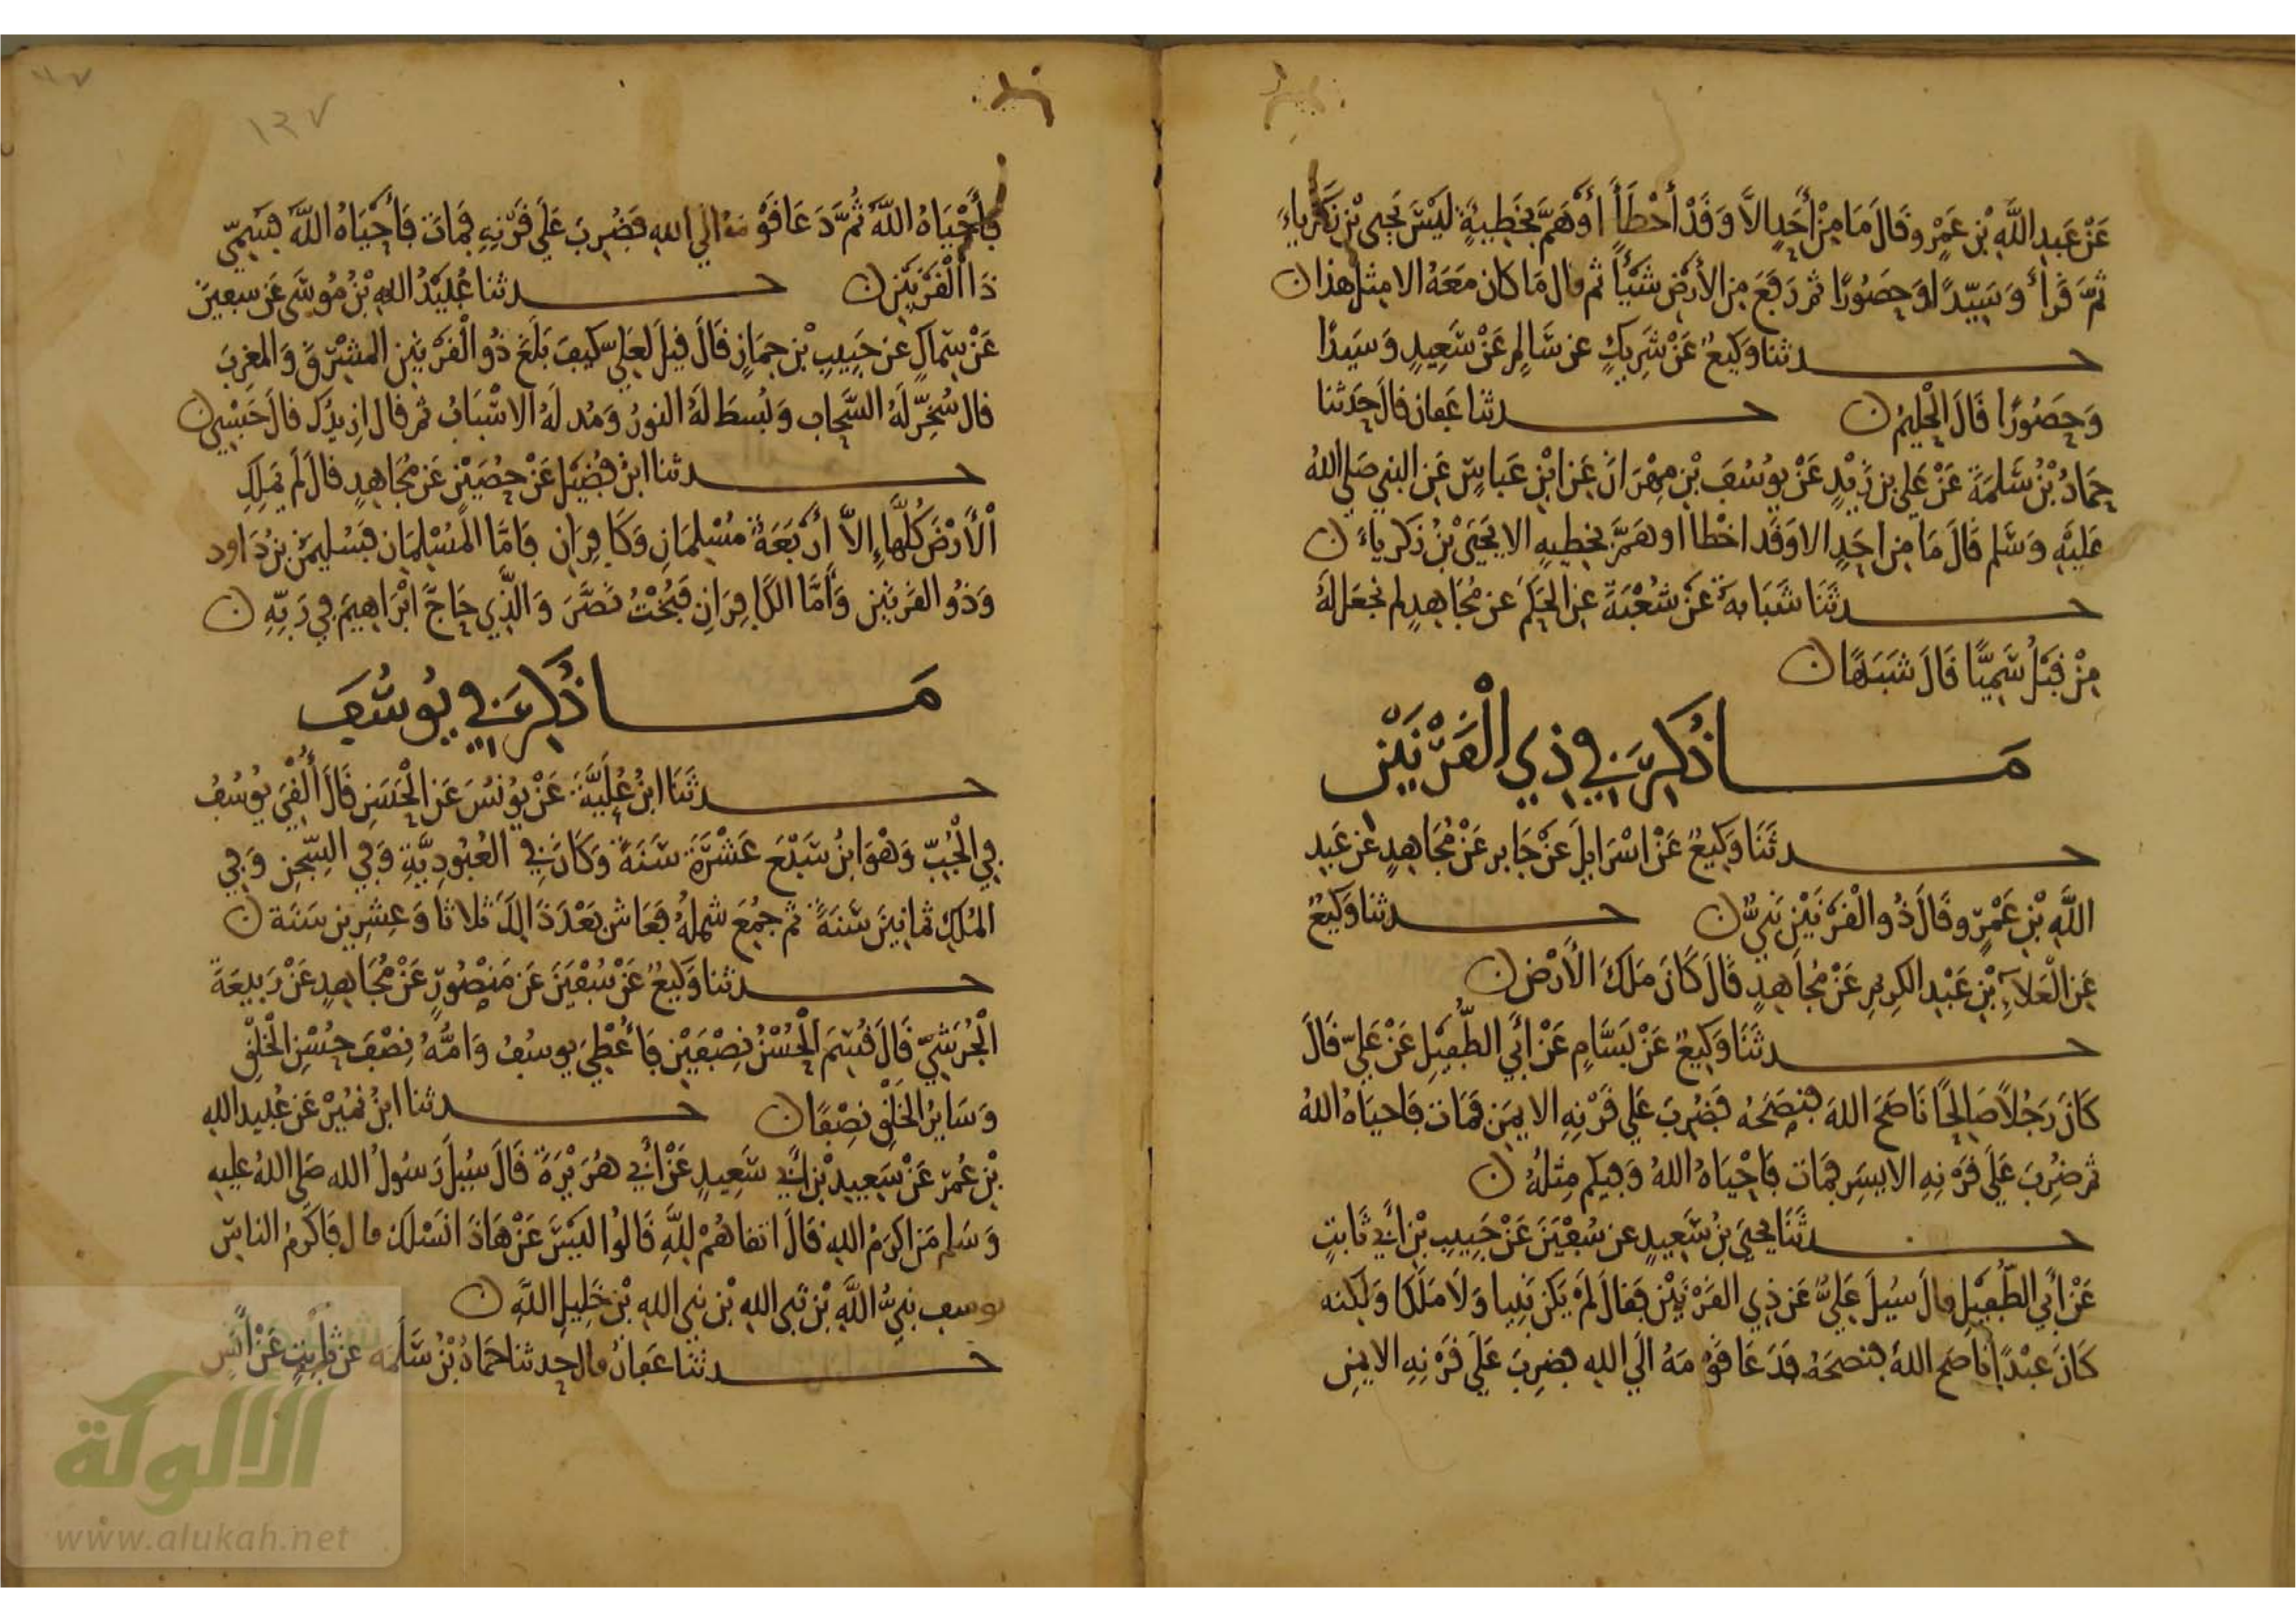 عَنْ عَبدِ اللَّهِ بْنِ عَمْرٍو قَالَ مَا مِنْ أَحَدٍ إلاَّ وَقَدْ أَخْطَأَ أَوْ هَمَّ بخَطِيئةٍ لَيْسَ يَحيى بْنِ زكَرياء
ثمَّ قَرأ وَسَيّدًا وَحَصُورًا ثم رَفعَ مِن الأرْضِ شَيْئًا ثم قال مَا كان مَعَهُ الا مِثل هذا ن
حـــدثنا وَكيعٌ عَنْ شَرِيكٍ عن سَالِمٍ عَنْ سَعِيدٍ وَسَيدًا
وَحَصُورًا قَالَ الْحَلِيمُ ن حـــدثنا عَفان قالَ حَدثنا
حمَادُ بْنُ سَلَمَةَ عَنْ عَلي بن زَيْدٍ عَنْ يوُسُفَ بْنِ مِهْرَانَ عَن ابْنِ عَباسٍ عَن النبي صَلى اللهُ
عَليْهِ وَسَلم قالَ مَا مِن احَدٍ الا وَقَد اخْطا او هَمَّ بخطيه الا يَحْيَى بْنُ زكرياءَ ن
حـــدثَنَا شَبَابهُ عَنْ شُعْبَةَ عن الحَكَم عَن مُجَاهدٍ لم نجعَل لهُ
مِنْ قبْلُ سَمِيًّا قَالَ شَبَهًا ن
مَـــا ذُكِرَ فِي ذِي الْقَرْنَيْنِ
حـــدثَنَا وَكِيعٌ عَنْ اسْرَايلَ عَنْ جَابر عَنْ مُجَاهدٍ عَن عَبدِ
اللَّهِ بْنِ عَمْرٍو قَالَ ذُو الْقَرْنَيْنِ نَبيٌّ ن حـــدثنا وَكيعٌ
عَنِ الْعَلاَءِ بْنِ عَبْدِ الكَرِيمِ عَنْ مُجاهدٍ قَالَ كَانَ مَلكَ الأرْضِ ن
حـــدثَنَا وَكيعٌ عَنْ بَسَّامٍ عَنْ أبي الطُّفيْلِ عَنْ عَليّ قالَ
كَانَ رَجُلاً صَالِحًا نَاصَحَ اللهَ فنصَحَهُ فَضُرِبَ عَلَى قَرْنِهِ الايمَن فمَاتَ فَاحياهُ اللهُ
ثم ضُرِبَ عَلَى قَرْنِهِ الايسَرِ فمَات فَاحْيَاهُ اللهُ وَفيكم مِثلُهُ ن
حـــدثَنَا يَحيَى بنُ سَعِيدٍ عن سُفْيَنَ عَنْ حَبِيبِ بْنِ أبي ثَابتٍ
عَنْ أبي الطُّفيْلِ قال سُيلَ عَليٌّ عَن ذِي القَرْنَيْنِ فَقالَ لَمْ يَكُنْ نَبِيا وَلا مَلَكًا وَلكِنه
كَانَ عبْدًا نَاصَح اللهَ فنصَحَهُ فَدَعَا قَوْمَهُ الَي اللهِ فضرِبَ عَلَى قَرْنِهِ الايمَنِ
١٣٧
فأَحْيَاهُ اللَّهُ ثُمَّ دَعَا قَوْمَهُ الي اللهِ فَضُرِبَ عَلَى قَرْنِهِ فَمَاتَ فَأَحْيَاهُ اللَّهُ فسُمِّي
ذَا الْقَرْنَيْنِ ن حـــدثنا عُبَيْدُ اللهِ بْنُ مُوسَى عَن سفيَن
عَنْ سِمَاكٍ عَن حَبِيبِ بْنِ حِمَازٍ قَالَ قيلَ لعَليّ كيفَ بَلَغَ ذُو الْقَرْنَيْنِ المَشْرِقَ وَالمغرِبَ
قال سُخِّرَ لَهُ السَّحَاب وَبُسطَ لَهُ النورُ وَمُد لَهُ الاسْبَابُ ثم قال ازِيدُك قالَ حَسْبي ن
حـــدثنا ابنُ فُضَيْلٍ عَنْ حصَيْنٍ عَن مُجَاهدٍ قالَ لَم يَملِكِ
الْأَرْضَ كُلَّهَا إِلاَّ أرْبَعَةٌ مُسْلِمَانِ وَكَافِرَانِ فَامَّا المُسْلِمَانِ فَسُليمَن بنُ دَاود
وَذُو القرنَيْنِ وَأَمَّا الكَافِرَانِ فَبُخْتُ نَصَّرَ وَالَّذِي حَاجَّ ابْرَاهِيمَ فِي رَبّهِ ن
مَـــا ذُكِرَ فِي يُوسُفَ
حـــدثَنَا ابنُ عُلَيَّةَ عَنْ يوُنُسَ عَنِ الْحَسَنِ قَالَ أُلْقِيَ يوُسُفُ
فِي الْجُبّ وَهْوَ ابنُ سَبْعَ عَشْرَةَ سَنَةً وَكَانَ فِي العُبُودِيَّةِ وَفِي السّجْنِ وَفِي
المُلكِ ثمانِينَ سَنَةً ثم جُمِعَ شملهُ فَعَاش بَعْدَ ذَالِكَ ثلاثا وَعِشرِينَ سَنَة ن
حـــدثنا وَكِيعٌ عَنْ سُفْيَنَ عَن مَنْصُورٍ عَنْ مُجَاهِدٍ عَنْ رَبيعَةَ
الْجُرَشيّ قَالَ قُسِمَ الْحُسْنُ نِصْفَيْنِ فَأُعْطِيَ يوسُفُ وَامُّهُ نِصْفَ حُسْنِ الْخَلْقِ
وَسَايرُ الخَلْقِ نصْفًا ن حـــدثنا ابنُ نُمَيْرٍ عَن عُبيدالله
بْنِ عُمَرَ عَنْ سَعِيدِ بْنِ أبي سَعِيدٍ عَنْ أَبي هُرَيْرَةَ قالَ سُيلَ رَسُولُ الله صَلى اللهُ عليهِ
وَسَلم مَن اكرَمُ اللهِ قَالَ اتقاهُمْ للَّهِ قَالُوا لَيْسَ عَنْ هَاذَا نَسْلك قال فَاكْرَمُ الناسِ
يوسف نبيُّ اللَّهِ بْن نَبي الله بْن نبي الله بْن خَلِيلِ اللَّهِ ن
حـــدثنَا عَفانُ قال حدثنا حَمَادُ بْنُ سَلَمَه عَن ثَابِتٍ عَنْ أنَسٍ
الألوكة
www.alukah.net